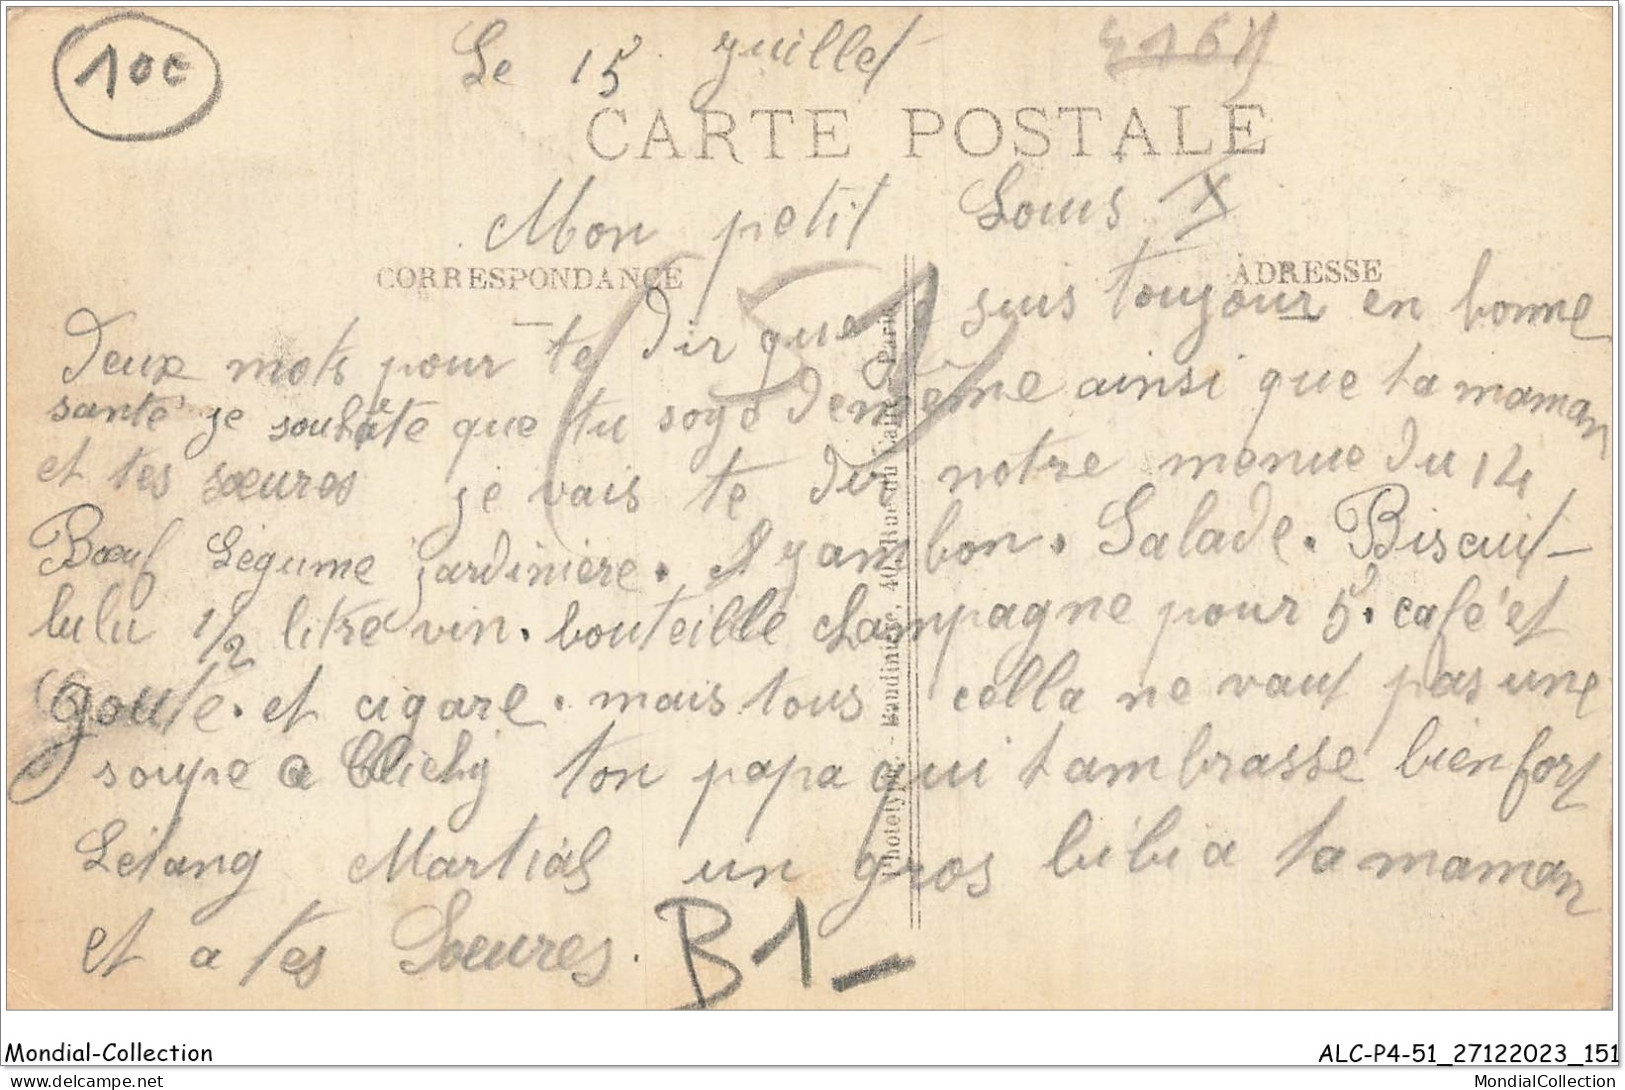 10€
Le 15 juillet
CARTE POSTALE
Mon petit Louis X
CORRESPONDANCE
ADRESSE
Deux mots pour te dir que suis toujour en bonne
santé je souhâte que tu soye de même ainsi que ta maman
et tes sœures je vais te dir notre menue du 14
Bœuf Légume jardinière. jambon. Salade. Biscuit
lulu 1/2 litre vin. bouteille champagne pour 5. café et
goute. et cigare. mais tous cella ne vaut pas une
soupe a Clichy ton papa qui t ambrasse bien fort
Létang Martial un gros bibi a ta maman
et a tes Sœures.
B1-
Phototypie. - Baudinière, 40, Rue du Caire, Paris
Mondial-Collection
ALC-P4-51_27122023_151
www.delcampe.net
MondialCollection